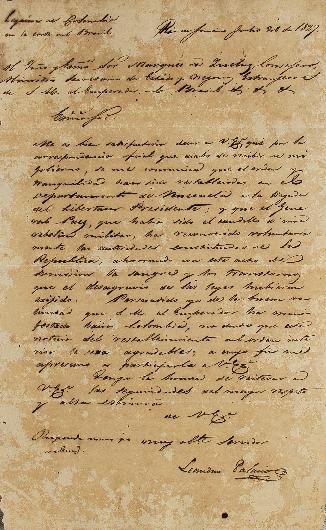 Legacion de Colombia
en la corte del Brasil
Rio de Janeiro Junio 28 de 1827.
Al Illmo y Exmo Sor Marques de Queluz, Consejero,
Ministro Secretario de Estado y Negocios Estrangeros de
S. M. el Emperador del Brasil &. &. &.
Exmo Sor
Me es satisfactorio decir a V. Exa que por la
correspondencia oficial que acabo de recibir de mi
gobierno, se me comunica que el orden y
tranquilidad han sido restablecidos en el
Departamento de Venezuela a la llegada
del Libertador Presidente; y que el Gene-
ral Paez, que habia sido el caudillo de una
rebelion militar, ha reconocido voluntaria-
mente las autoridades constituidas de la
Republica, ahorrando con este acto de
sumision la sangre y los trastornos
que el desagravio de las leyes hubieran
exijido. Persuadido yo de la buena vo-
luntad que S. M. el Emperador ha mani-
festado hacia Colombia, no dudo que esta
noticia del restablecimiento del orden inte-
rior le sea agradable; a cuyo fin me
apresuro a participarla a V. Exa
Tengo la honra de reiterar a
V. Exa las seguridades del mayor respeto
y alta estimacion
de V. Exa
muy atto servidor
Leandro Palacios